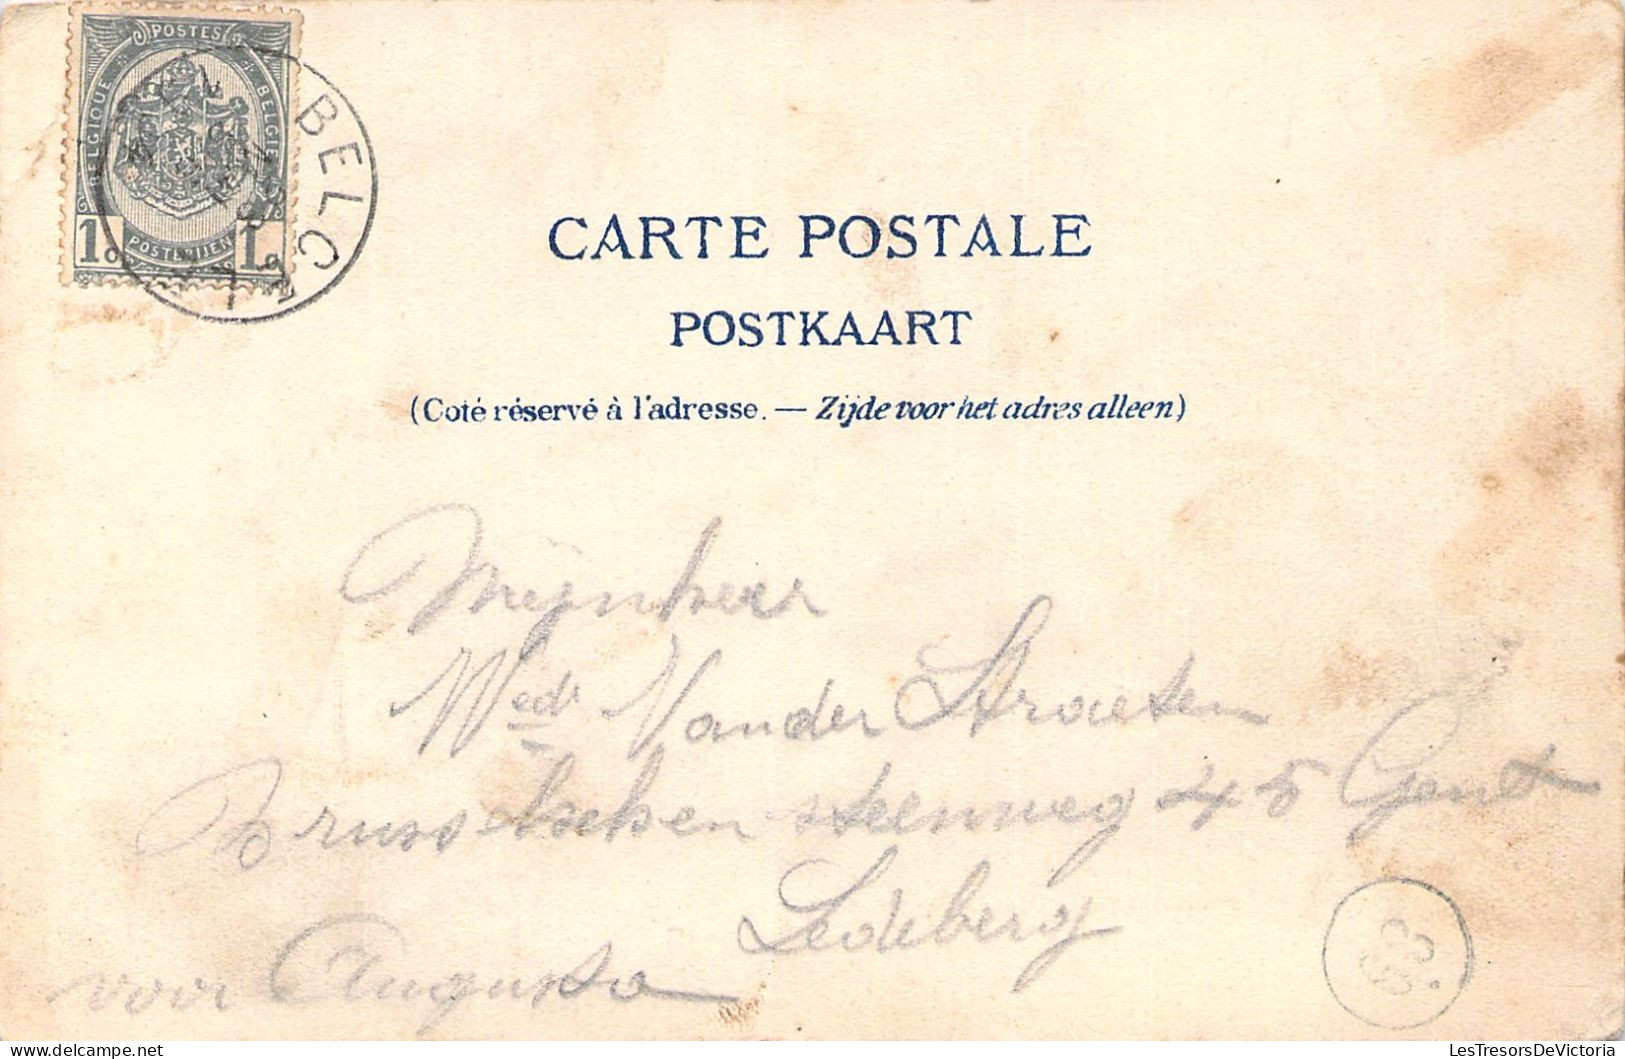 POSTES
BELGIQUE
BELGIE
POSTERIJEN
1 1
BELG
CARTE POSTALE
POSTKAART
(Coté réservé à l'adresse. — Zijde voor het adres alleen)
Mijnheer
Wed Van der Straeten
Brusselschen steenweg 45 Gent
Ledeberg
voor Augusta
LesTresorsDeVictoria